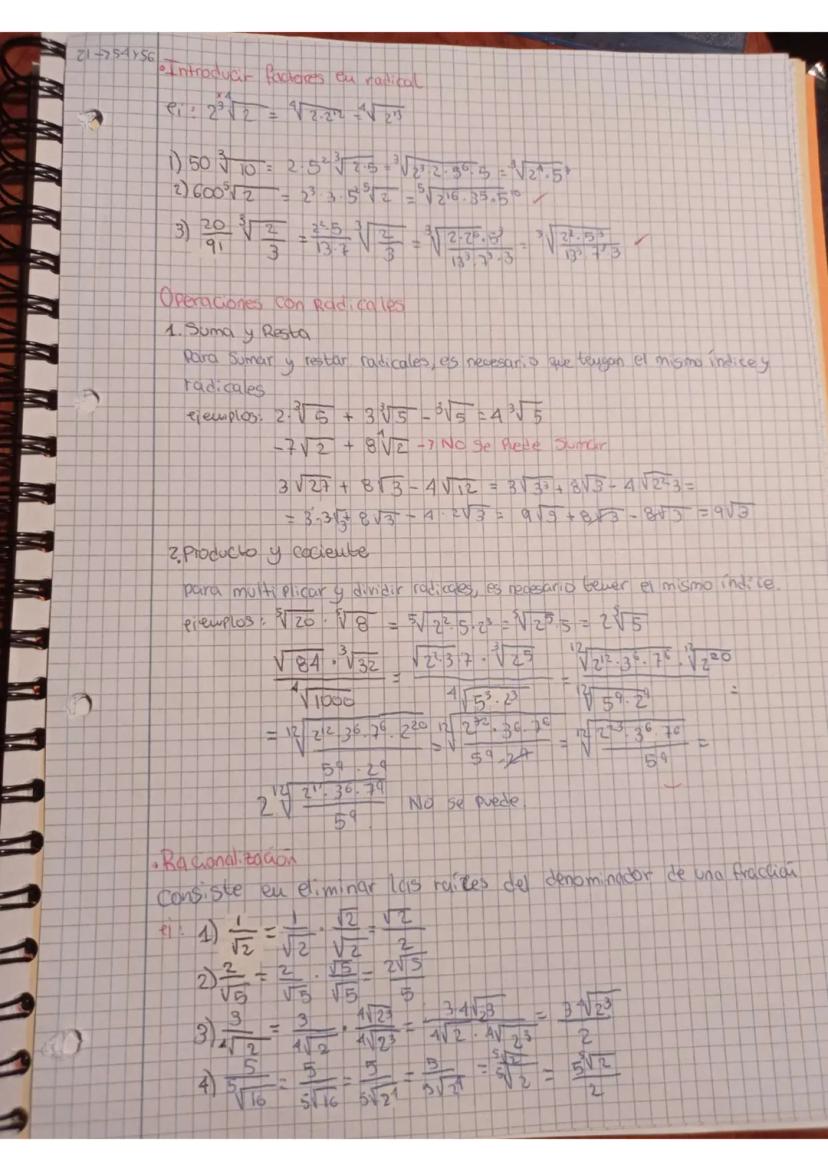 21→754 y 56
• Introducir factores en radical
ej: 2³ ⁴√2 = ⁴√2·2¹² = ⁴√2¹³
1) 50 ³√10 = 2·5² ³√2·5 = ³√2³·2·5⁶·5 = ³√2⁴·5⁷
2) 600 ⁵√2 = 2³·3·5² ⁵√2 = ⁵√2¹⁶·3⁵·5¹⁰ ✓
3) 20/91 ³√2/3 = 2²·5/13·7 ³√2/3 = ³√2·2⁶·5³/13³·7³·3 = ³√2⁷·5³/13³·7³·3 ✓
Operaciones con Radicales
1. Suma y Resta
Para sumar y restar radicales, es necesario que tengan el mismo índice y
radicales
ejemplos: 2·³√5 + 3³√5 - ³√5 = 4 ³√5
-7√2 + 8⁴√2 → NO se Puede sumar
3√27 + 8√3 - 4√12 = 3√3³ + 8√3 - 4√2²·3 =
= 3·3√3 + 8√3 - 4·2√3 = 9√3 + 8√3 - 8√3 = 9√3
2. Producto y cociente
para multiplicar y dividir radicales, es necesario tener el mismo índice.
ejemplos: ⁵√20 · ⁵√8 = ⁵√2²·5·2³ = ⁵√2⁵·5 = 2⁵√5
√84 · ³√32 / ⁴√1000 = √2²·3·7 · ³√2⁵ / ⁴√5³·2³ = ¹²√2¹²·3⁶·7⁶ · ¹²√2²⁰ / ¹²√5⁹·2⁹ =
= ¹²√2¹²·3⁶·7⁶·2²⁰/5⁹·2⁹ = ¹²√2³²·3⁶·7⁶/5⁹·2⁹ = ¹²√2²³·3⁶·7⁶/5⁹ =
2 ¹²√2¹¹·3⁶·7⁹/5⁹ No se puede
• Racionalización
Consiste en eliminar las raíces del denominador de una fracción
ej: 1) 1/√2 = 1/√2 · √2/√2 = √2/2
2) 2/√5 = 2/√5 · √5/√5 = 2√5/5
3) 3/⁴√2 = 3/⁴√2 · ⁴√2³/⁴√2³ = 3·⁴√2³/⁴√2·⁴√2³ = 3⁴√2³/2
4) 5/⁵√16 = 5/⁵√16 = 5/⁵√2⁴ = 5/⁵√2⁴ = ⁵√2/⁵√2 = 5⁵√2/2